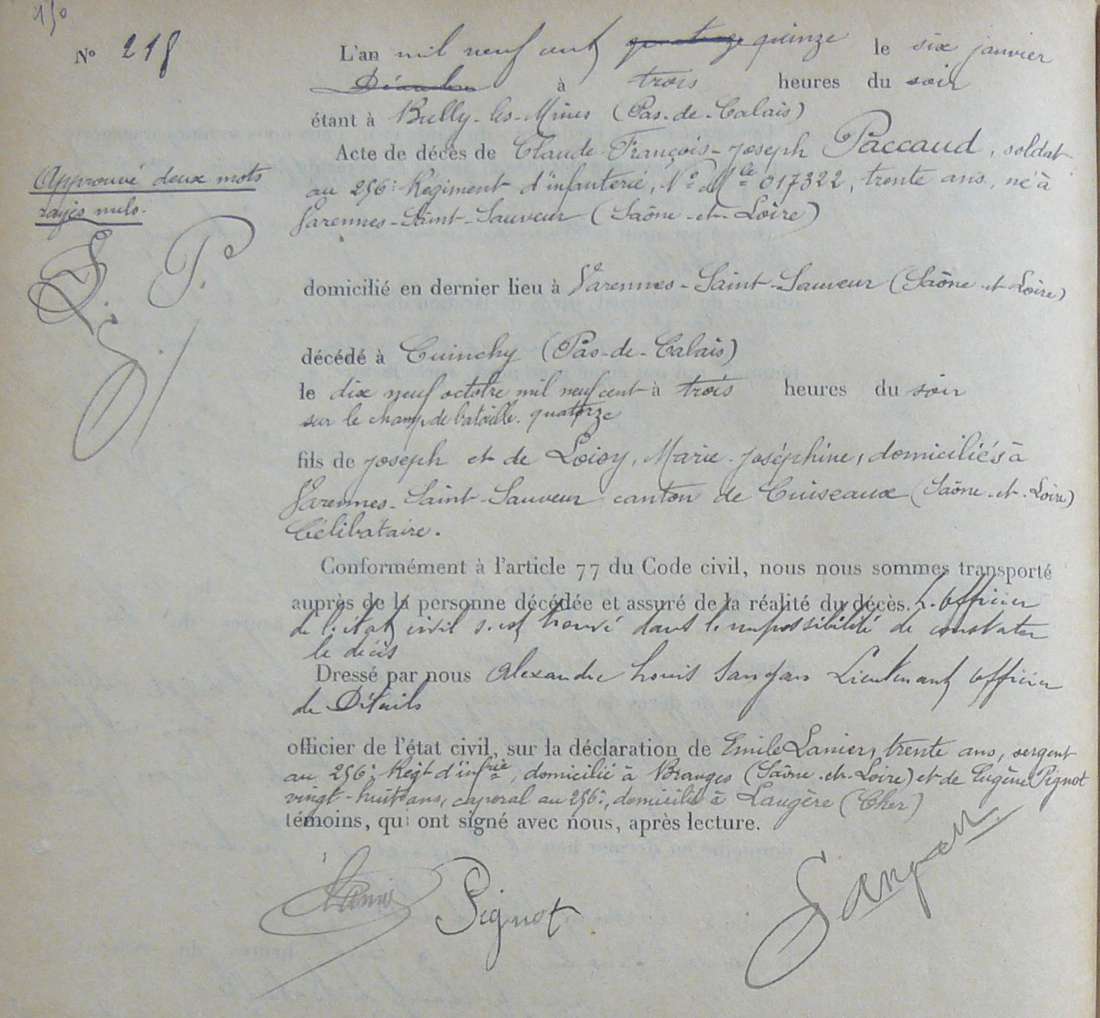 150
N° 218
L'an mil neuf cent quatorze quinze le six janvier
Décembre à trois heures du soir
étant à Bully-les-Mines (Pas-de-Calais)
Acte de décès de Claude François-Joseph Paccaud, soldat
au 256e Régiment d'infanterie, N° Mle 017322, trente ans, né à
Varennes-Saint-Sauveur (Saône-et-Loire)
Approuvé deux mots
rayés nuls.
L. P.
S
domicilié en dernier lieu à Varennes-Saint-Sauveur (Saône-et-Loire)
décédé à Cuinchy (Pas-de-Calais)
le dix neuf octobre mil neuf cent à trois heures du soir
sur le champ de bataille. quatorze
fils de Joseph et de Loisy, Marie-Joséphine, domiciliés à
Varennes-Saint-Sauveur canton de Cuiseaux (Saône-et-Loire)
Célibataire.
Conformément à l'article 77 du Code civil, nous nous sommes transporté
auprès de la personne décédée et assuré de la réalité du décès. L'officier
de l'état civil s'est trouvé dans l'impossibilité de constater
le décès
Dressé par nous Alexandre Louis Lieutenant officier
de Détails
officier de l'état civil, sur la déclaration de Emile Lanier, trente ans, sergent
au 256e Regt d'infrie, domicilié à Branges (Saône-et-Loire) et de Eugène Pignot
vingt-huit ans, caporal au 256e, domicilié à Laugère (Cher)
témoins, qui ont signé avec nous, après lecture.
Lanier Pignot